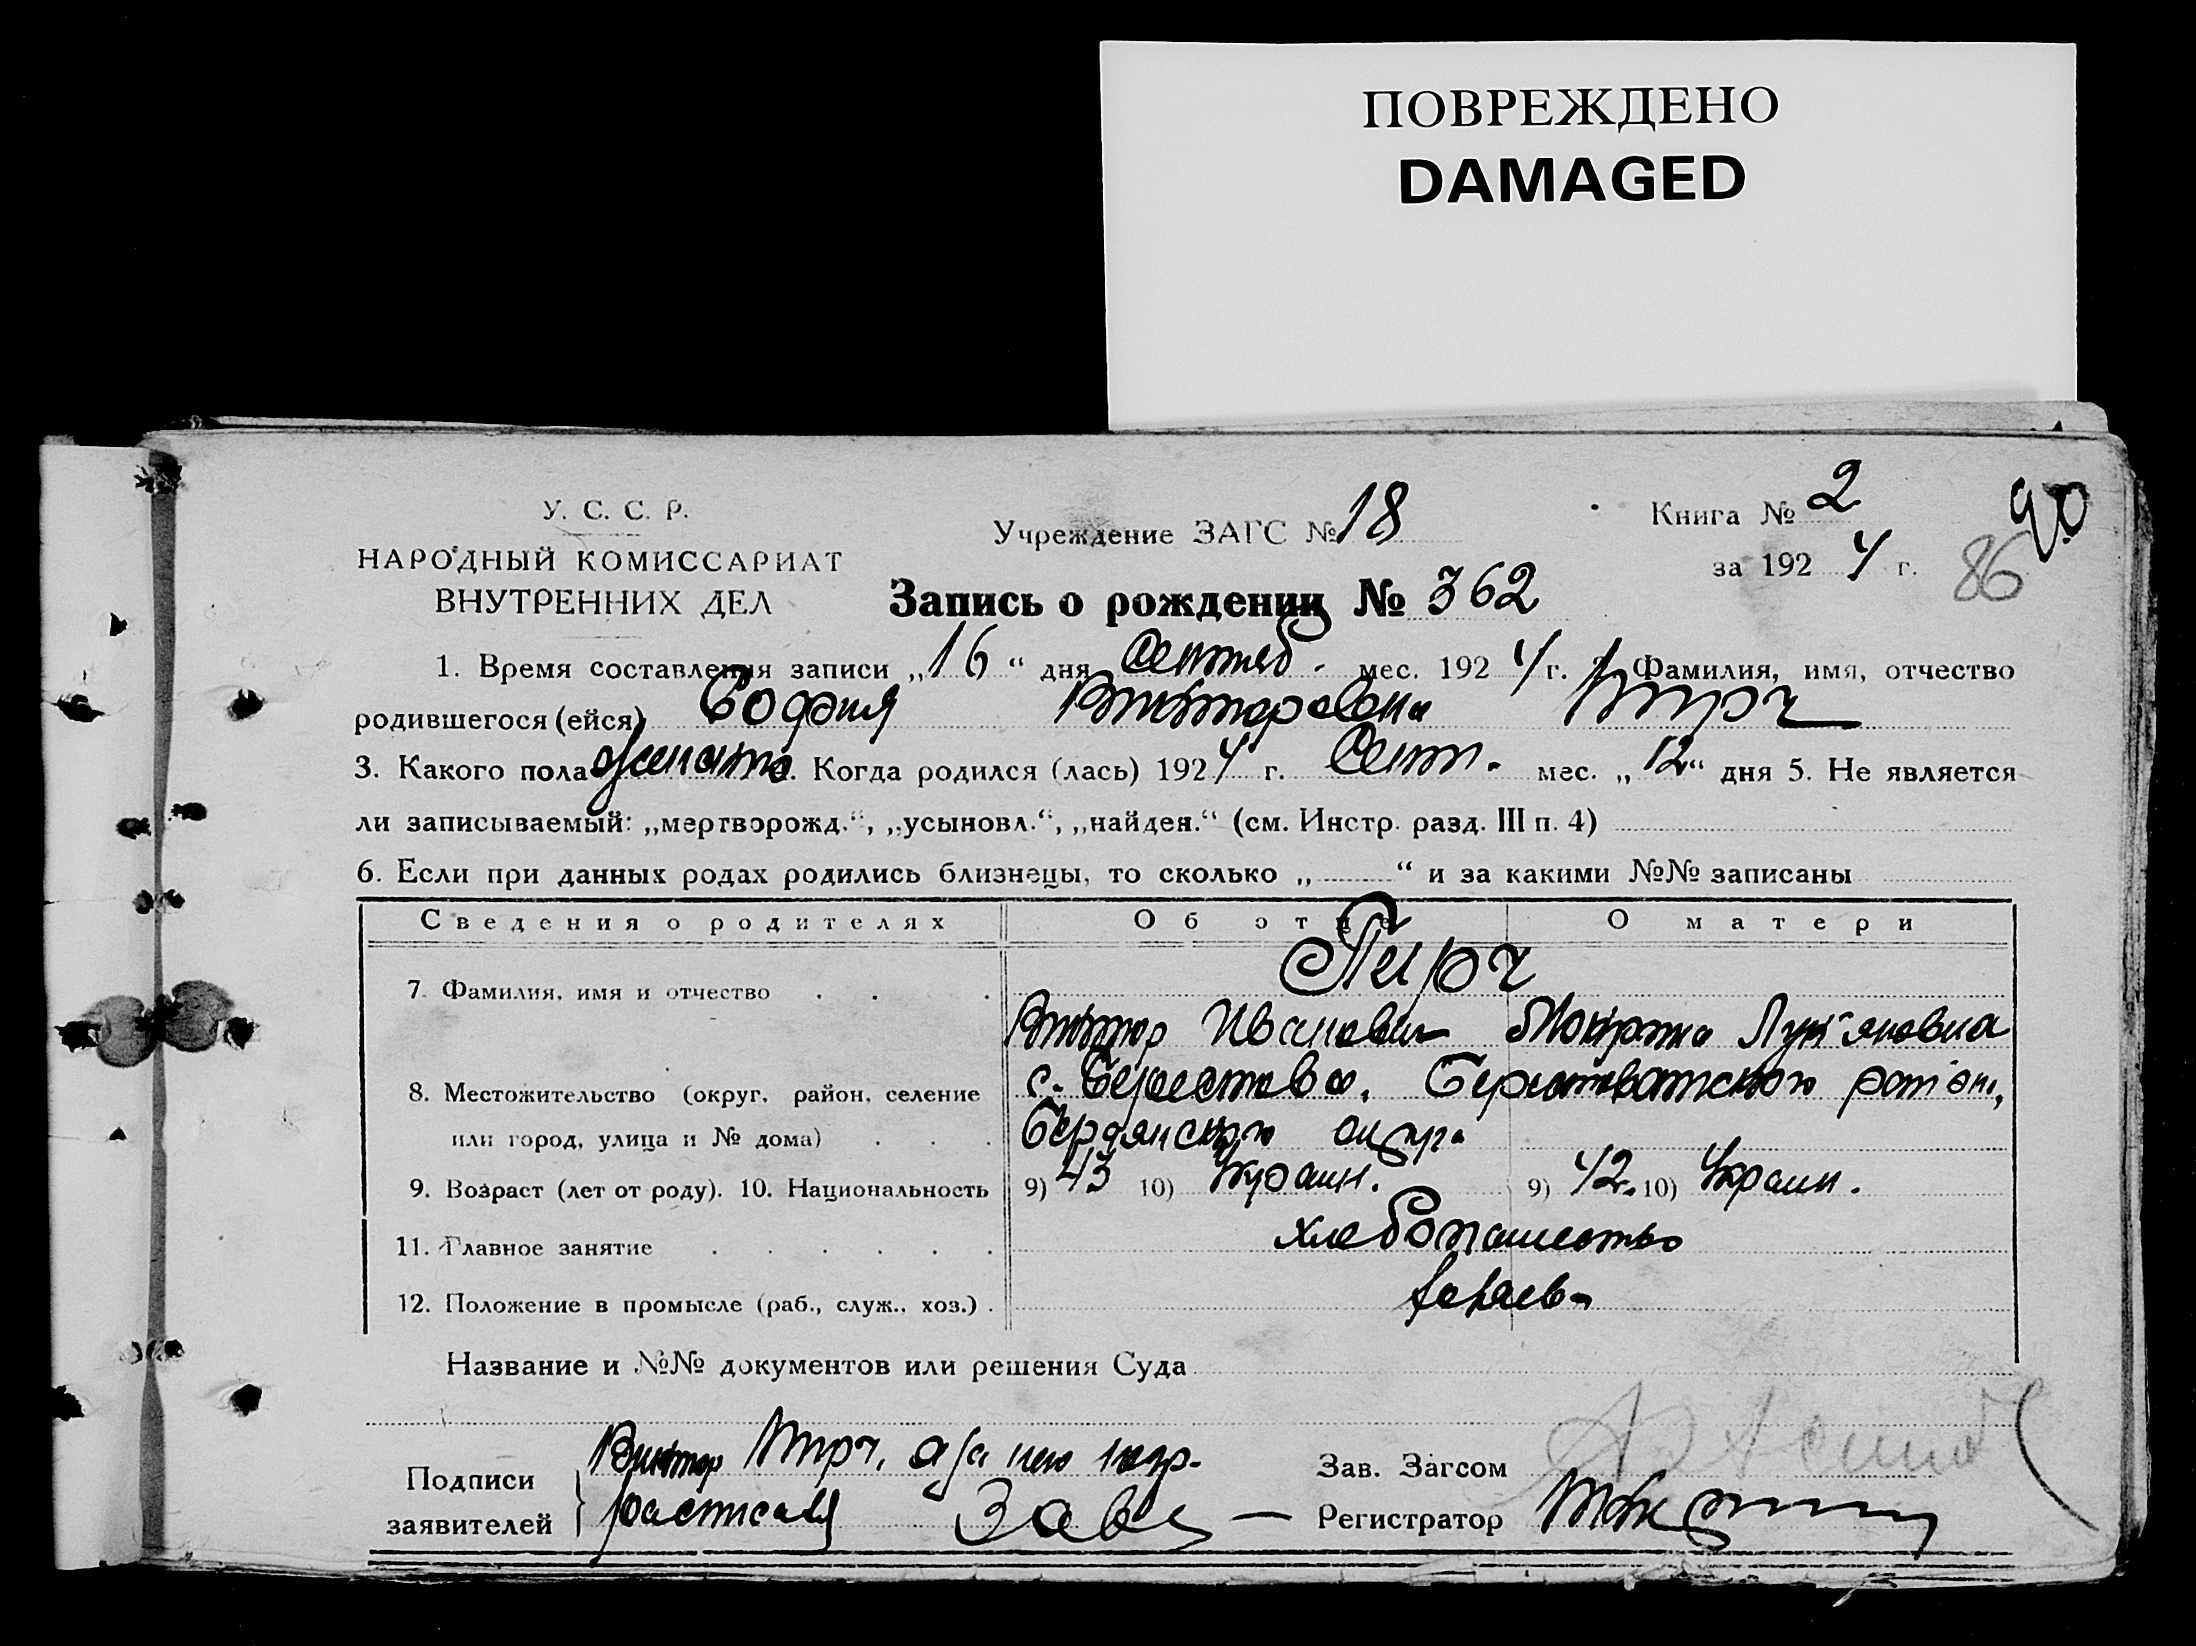 ПОВРЕЖДЕНО
DAMAGED
У. С. С. Р.
НАРОДНЫЙ КОМИССАРИАТ
ВНУТРЕННИХ ДЕЛ
Учреждение ЗАГС № 18
Книга № 2
за 1924 г.
90
86
Запись о рождении № 362
1. Время составления записи „16“ дня Сентяб. мес. 1924 г. Фамилия, имя, отчество
родившегося (ейся) София Викторовна Пирч
3. Какого пола женского. Когда родился (лась) 1924 г. Сент. мес. „12“ дня 5. Не является
ли записываемый: „мертворожд.“, „усыновл.“, „найден.“ (см. Инстр. разд. III п. 4)
6. Если при данных родах родились близнецы, то сколько „ “ и за какими №№ записаны
Сведения о родителях Об отце О матери
7. Фамилия, имя и отчество Пирч
Виктор Иванович Лук'яновна
8. Местожительство (округ, район, селение с. Берестовое, Берестоватского район,
или город, улица и № дома) Бердянского округа
9. Возраст (лет от роду). 10. Национальность 9) 43 10) Украин. 9) 42. 10) Украин.
11. Главное занятие хлебопашество
12. Положение в промысле (раб., служ., хоз.) хозяев
Название и №№ документов или решения Суда
Подписи Виктор Пирч, а за него негр.
заявителей расписался
Зав. Загсом
Регистратор